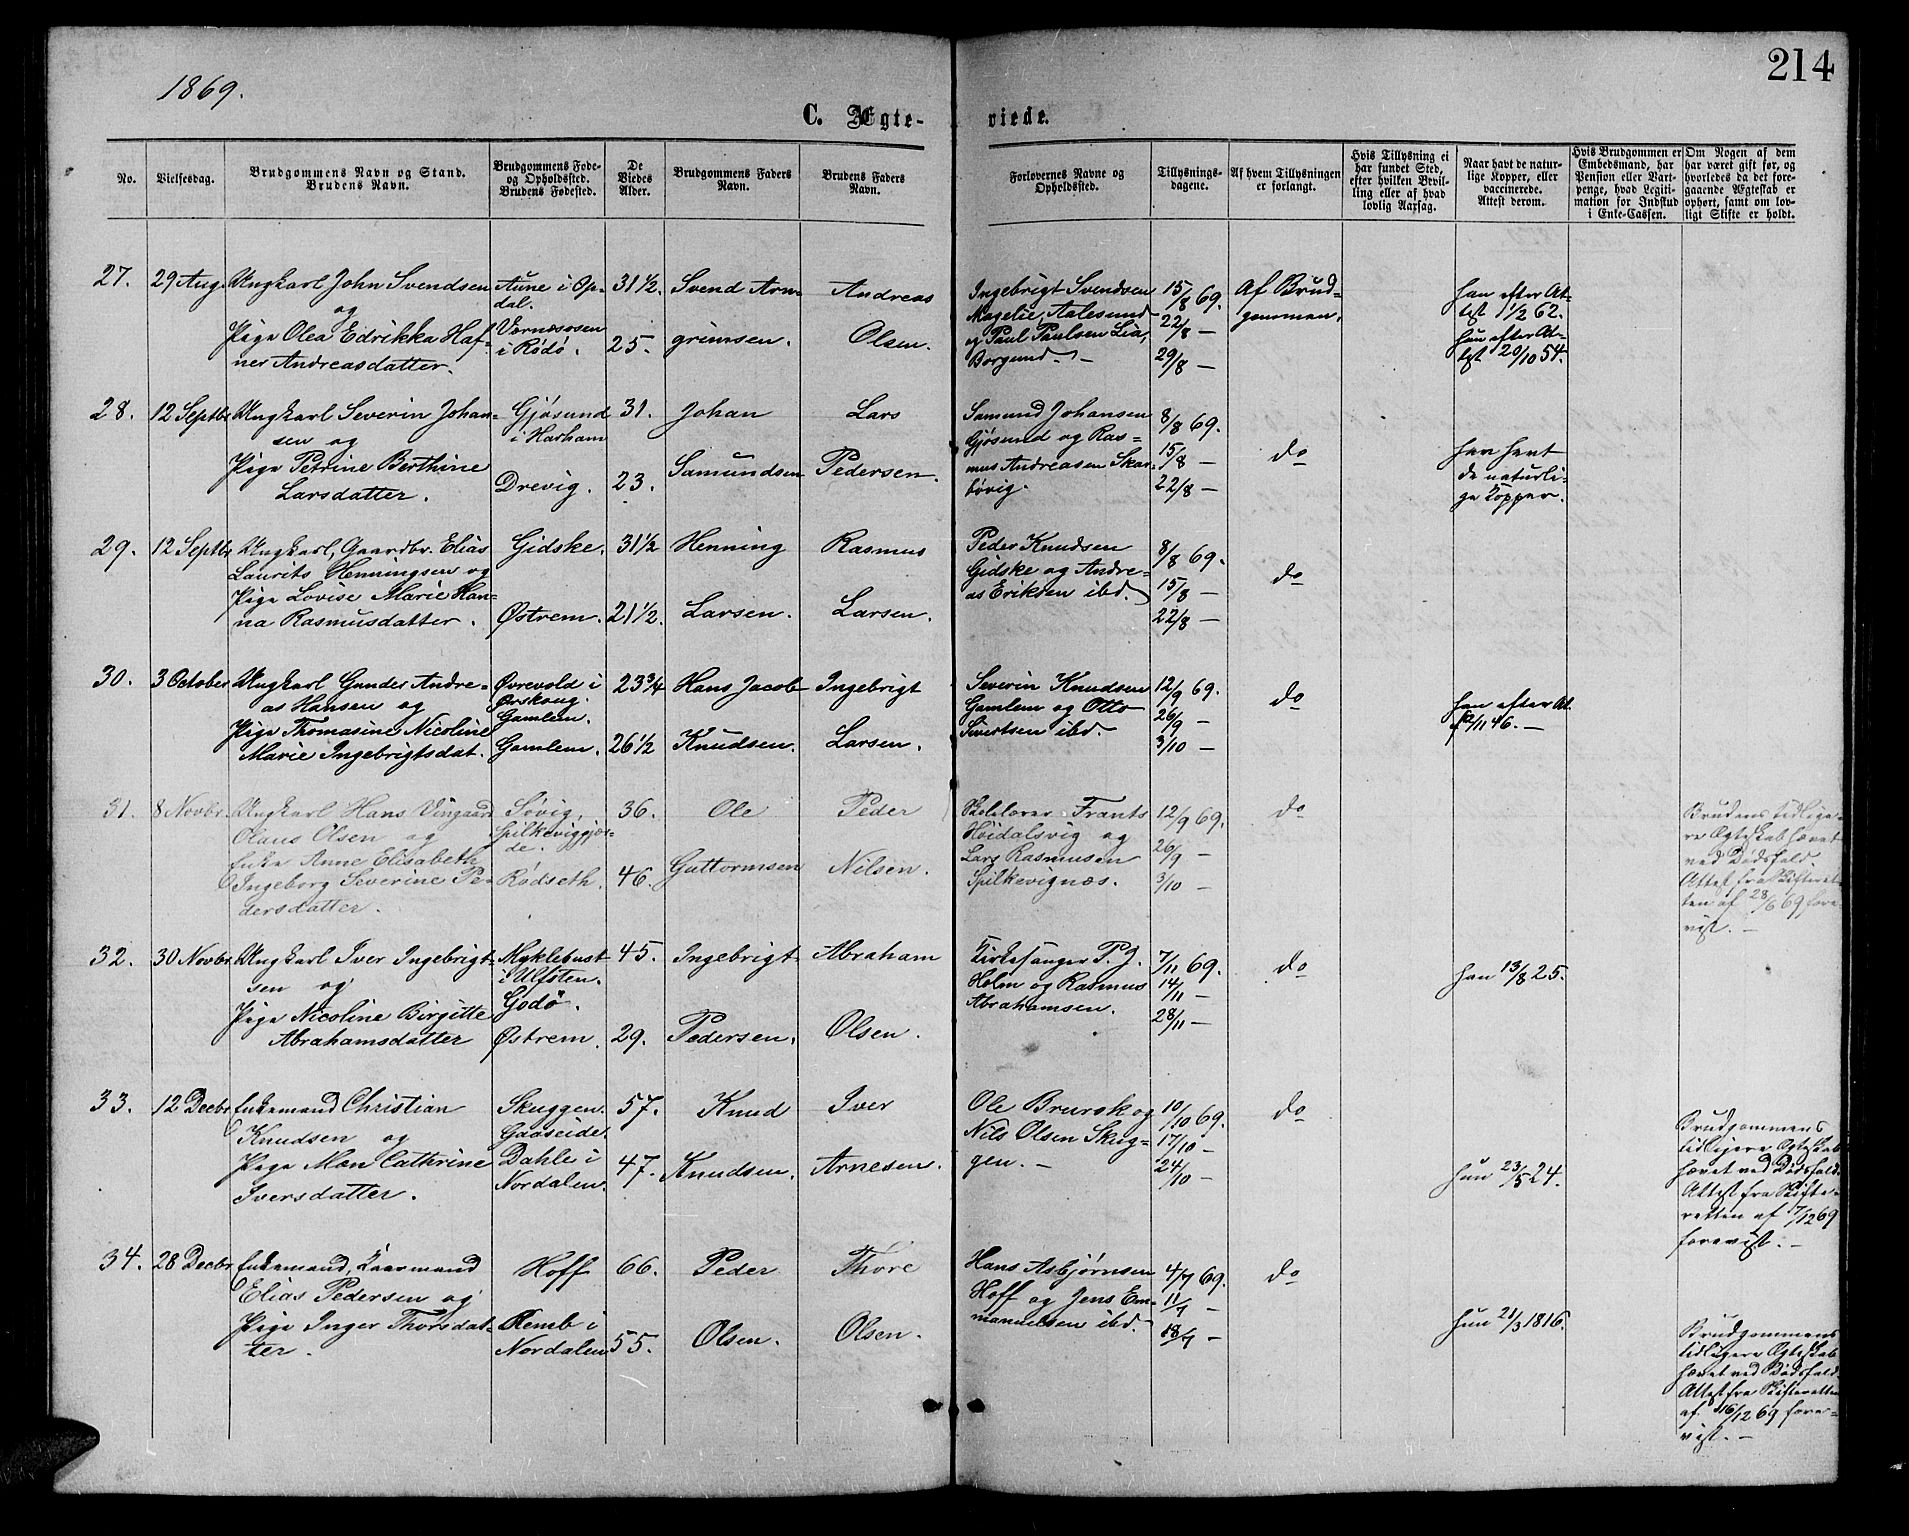 214
1869.
C. Ægte-
viede.
No.
Vielsesdag.
Brudgommens Navn og Stand.
Brudens Navn.
Brudgommens Føde-
og Opholdssted.
Brudens Fødested.
De
Viedes
Alder.
Brudgommens Faders
Navn.
Brudens Faders
Navn.
Forlovernes Navne og
Opholdssted.
Tillysnings-
dagene.
Af hvem Tillysningen
er forlangt.
Hvis Tillysning ei
har fundet Sted,
efter hvilken Bevil-
ling eller af hvad
lovlig Aarsag.
Naar havt de natur-
lige Kopper, eller
vaccinerede.
Attest derom.
Hvis Brudgommen er
Embedsmand, har
Pension eller Vart-
penge, hvad Legiti-
mation for Indskud
i Enke-Cassen.
Om Nogen af dem
har været gift før, og
hvorledes da det fore-
gaaende Ægteskab er
ophørt, samt om lov-
ligt Skifte er holdt.
27.
29 Aug.
Ungkarl John Svendsen
og
Pige Olea Edrikka Haf-
ner Andreasdatter.
Aune i Op-
dal.
Værnæsosen
i Rödö.
31 1/2.
25.
Svend Arn-
grimsen.
Andreas
Olsen.
Ingebrigt Svendsen
Magelie, Aalesund
og Paul Paulsen Lia,
Borgund. -
15/8 69.
22/8 -
29/8 -
Af Brud-
gommen.
han efter At-
test 1/2 62.
hun efter At-
test 20/10 54.
28.
12 Septbr.
Ungkarl Severin Johan-
sen og
Pige Petrine Berthine
Larsdatter.
Gjøsund
i Harham
Drevig.
31.
23.
Johan
Samundsen
Lars
Pedersen.
Samund Johansen
Gjøsund og Ras-
mus Andreasen Skar-
bövig.
8/8 69.
15/8 -
22/8 -
do
han havt
de naturli-
ge Kopper.
29.
12 Septbr.
Ungkarl, Gaardbr. Elias
Laurits Henningsen og
Pige Lovise Marie Han-
na Rasmusdatter.
Gidske.
Østrem.
31 1/2
21 1/2.
Henning
Larsen.
Rasmus
Larsen.
Peder Knudsen
Gidske og Andre-
as Eriksen ibd.
8/8 69.
15/8 -
22/8 -
do
30.
3 October
Ungkarl Gunder Andre-
as Hansen og
Pige Thomasine Nicoline
Marie Ingebrigtsdat.
Øvrevold i
Ørskoug.
Gamlem.
Gamlem.
23 3/4
26 1/2
Hans Jacob
Knudsen.
Ingebrigt
Larsen.
Severin Knudsen
Gamlem og Otto
Sivertsen ibd.
12/9 69.
26/9 -
3/10 -
do
han efter At.
/11 46. -
31.
8 Novbr.
Ungkarl Hans Vingaard
Olaus Olsen og
Enke Anne Elisabeth
Ingeborg Severine Pe-
dersdatter.
Søvig,
Spilkeviggjær-
de.
Rödseth.
36.
46.
Ole
Guttormsen
Peder
Nilsen.
Skolelærer Frants
Höidalsvig og
Lars Rasmusen
Spilkevignæs.
12/9 69.
26/9 -
3/10 -
do
Brudens tidlige-
re Ægteskab hævet
ved Dödsfald.
Attest fra Skifteret-
ten af 28/6 69 fore-
vist. -
32.
30 Novbr.
Ungkarl Iver Ingebrigt-
sen og
Pige Nicoline Birgitte
Abrahamsdatter
Myklebust
i Ulfsten.
Godö.
Østrem.
45.
29.
Ingebrigt
Pedersen.
Abraham
Olsen.
Kirkesanger P. J.
Holm og Rasmus
Abrahamsen.
7/11 69.
14/11 -
28/11 -
do
han 13/8 25.
33.
12 Decbr
Enkemand Christian
Knudsen og
Pige Mæn Cathrine
Iversdatter.
Skuggen.
Gaaseide.
Dahle i
Nordalen.
57.
47.
Knud
Knudsen.
Iver
Arnesen.
Ole Brursk og
Nils Olsen Skug-
gen. -
10/10 69.
17/10 -
24/10 -
do
hun 23/5 24.
Brudgommens
tidligere Ægteskab
hævet ved Dödsfald.
Attest fra Skifte-
retten af 7/12 69
forevist. -
34.
28 Decbr
Enkemand, Kaarmand
Elias Pedersen og
Pige Inger Thorsdat-
ter.
Hoff
Remb i
Nordalen
66.
55.
Peder
Olsen.
Thore
Olsen.
Hans Asbjørnsen
Hoff og Jens Em-
manuelsen ibd.
4/7 69.
11/7 -
18/7 -
do
hun 21/3 1816.
Brudgommens
tidligere Ægteskab
hævet ved Dödsfald.
Attest fra Skifteretten
af 16/12 69 fore-
vist. -